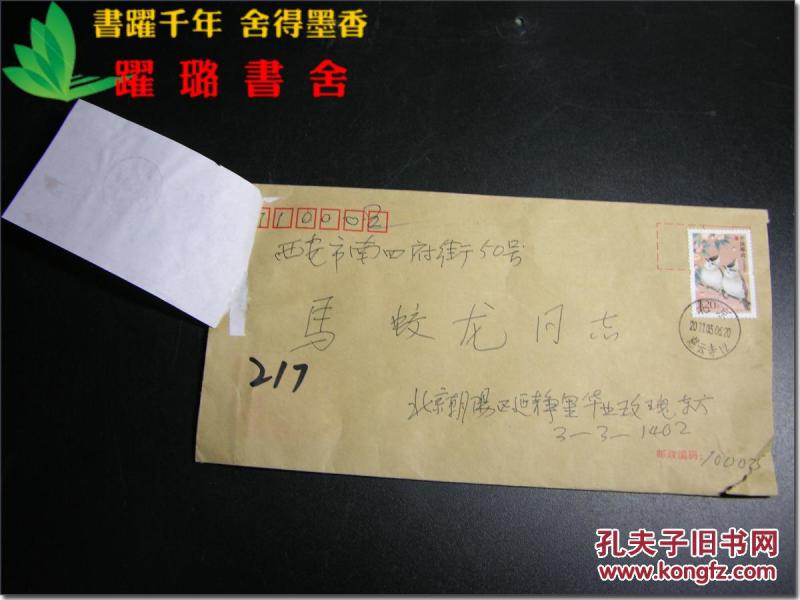 書躍千年 舍得墨香
躍璐書舍
710002
西安市南四府街50号
马蛟龙同志
217
北京朝陽区延静里华业玫瑰东方
3-3-1402
邮政编码：100025
2011.03.06.20
孔夫子旧书网
www.kongfz.com